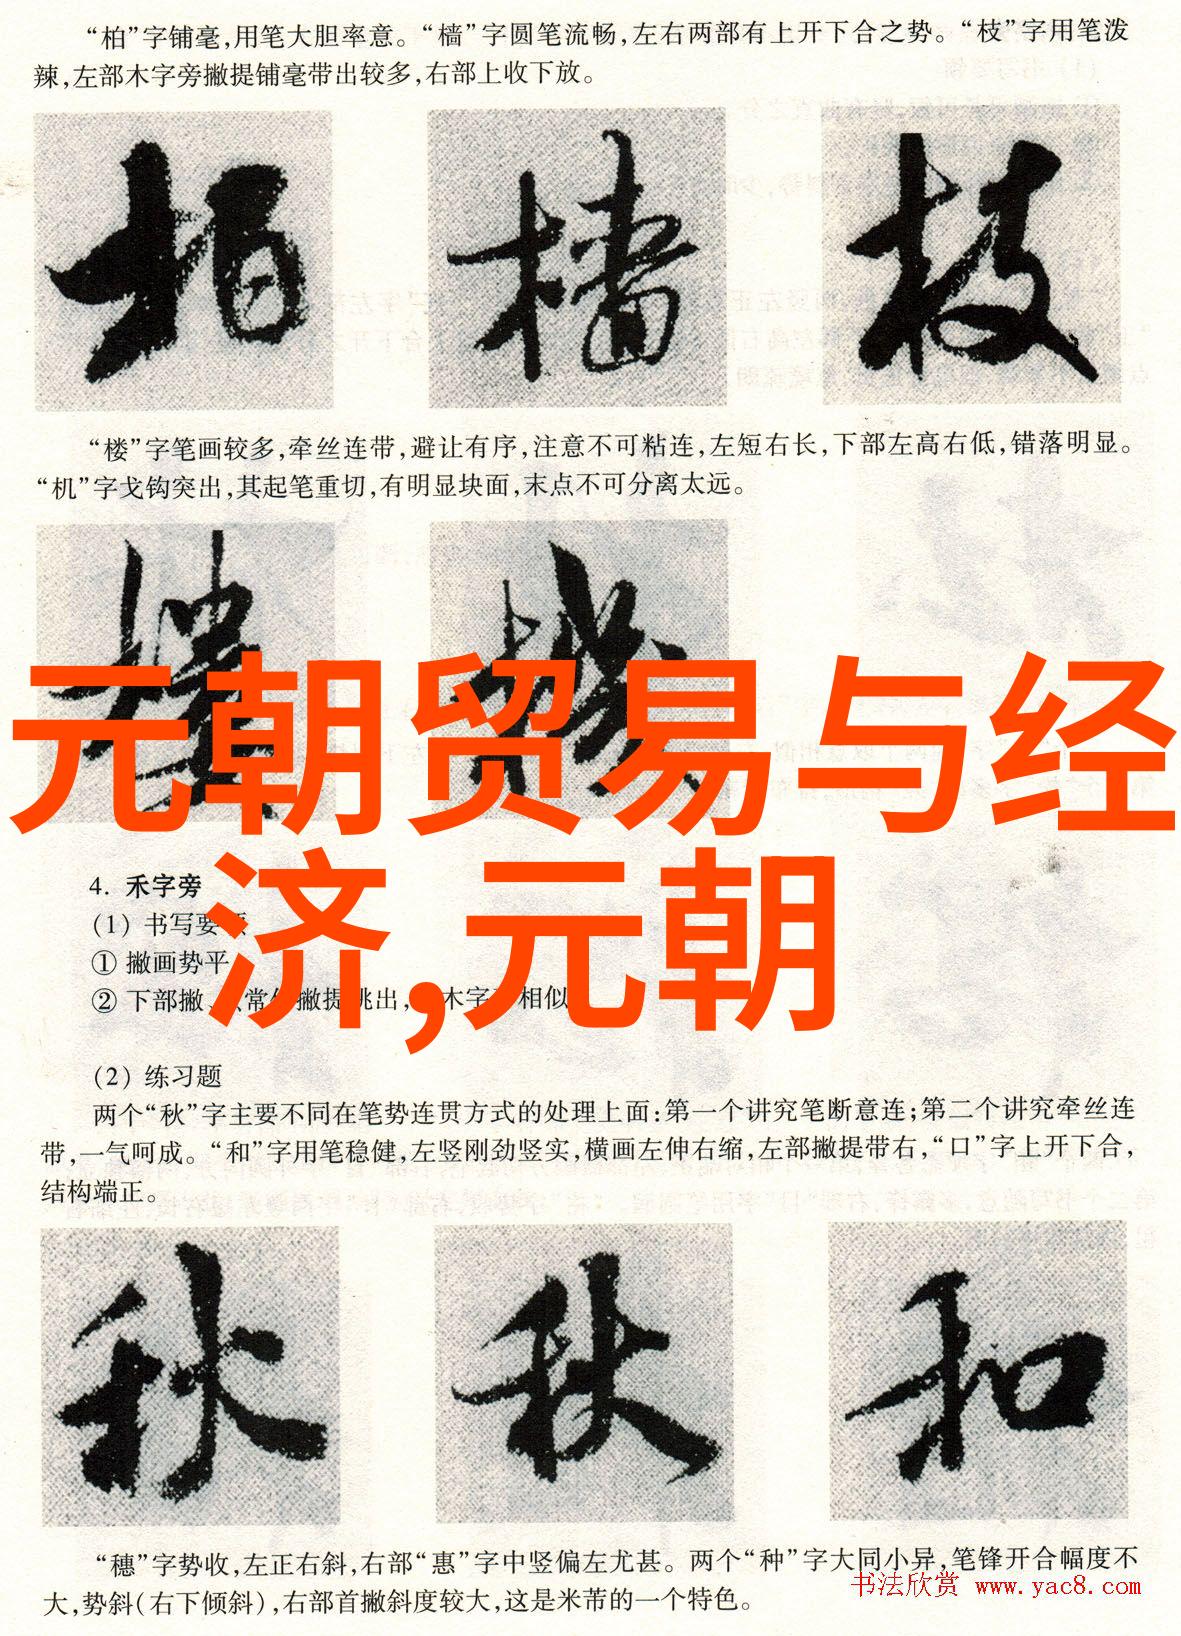 “柏”字铺毫,用笔大胆率意。“樯”字圆笔流畅,左右两部有上开下合之势。“枝”字用笔泼
辣,左部木字旁撇提铺毫带出较多,右部上收下放。
柏 樯 枝
“楼”字笔画较多,牵丝连带,避让有序,注意不可粘连,左短右长,下部左高右低,错落明显。
“机”字戈钩突出,其起笔重切,有明显块面,末点不可分离太远。
樓 機
元朝贸易与经
济,元朝
4. 禾字旁
(1) 书写要
① 撇画势平
② 下部撇、 常 撇提挑出, 木字 相似
(2) 练习题
两个“秋”字主要不同在笔势连贯方式的处理上面:第一个讲究笔断意连;第二个讲究牵丝连
带,一气呵成。“和”字用笔稳健,左竖刚劲竖实,横画左伸右缩,左部撇提带右,“口”字上开下合,
结构端正。
秋 秋 和
“穗”字势收,左正右斜,右部“惠”字中竖偏左尤甚。两个“种”字大同小异,笔锋开合幅度不
大,势斜(右下倾斜),右部首撇斜度较大,这是米芾的一个特色。
书法欣赏 www.yac8.com